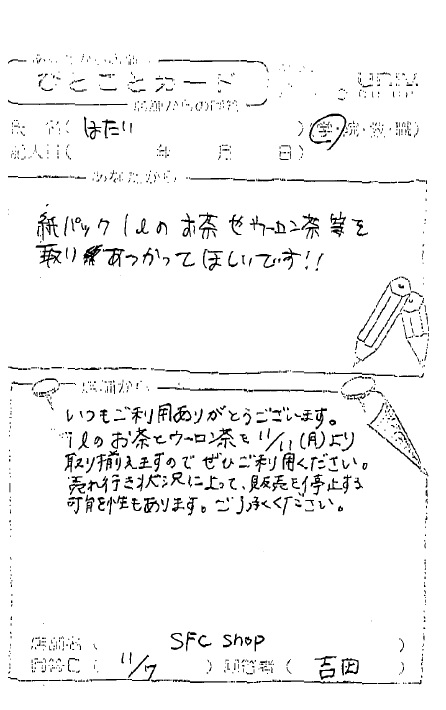 ひとことカード
UNIV.
店舗からの回答
氏 名( ほたい )(学・院・教・職)
記入日( 年 月 日)
あなたから
紙パック 1lの お茶 やウーロン茶 等を
取り あつかって ほしいです!!
店舗から
いつもご利用ありがとうございます。
1lの お茶とウーロン茶を 11/11(月)より
取り揃えますので ぜひご利用ください。
売れ行き状況によって、販売を停止する
可能性もあります。ご了承ください。
店舗名( SFC shop )
回答日( 11/7 )回答者( 吉田 )